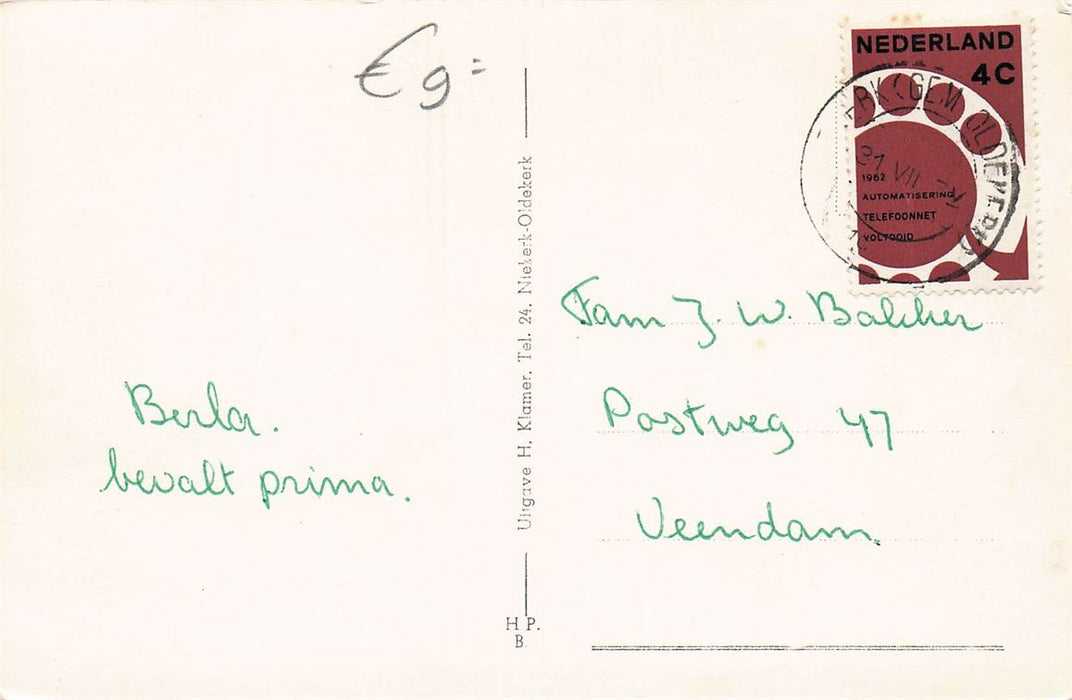 € 9=
NEDERLAND
4C
1962
AUTOMATISERING
TELEFOONNET
VOLTOOID
ERK (GEM OLDEKERK)
31 VII
Fam J. W. Bakker
Postweg 47
Veendam
Berla.
bevalt prima.
Uitgave H. Klamer. Tel. 24. Niekerk-Oldekerk
H P.
B.